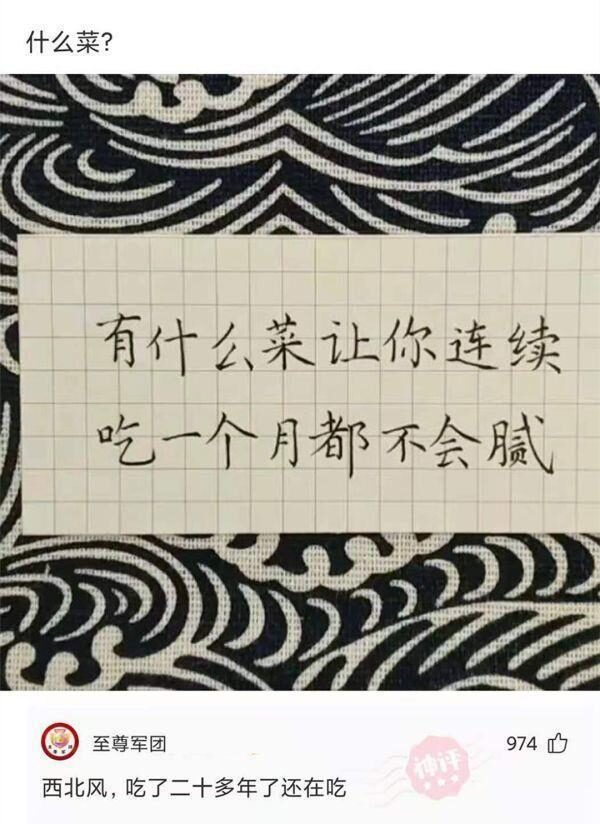 什么菜?
有什么菜让你连续
吃一个月都不会腻
至尊军团
974
西北风,吃了二十多年了还在吃
神评